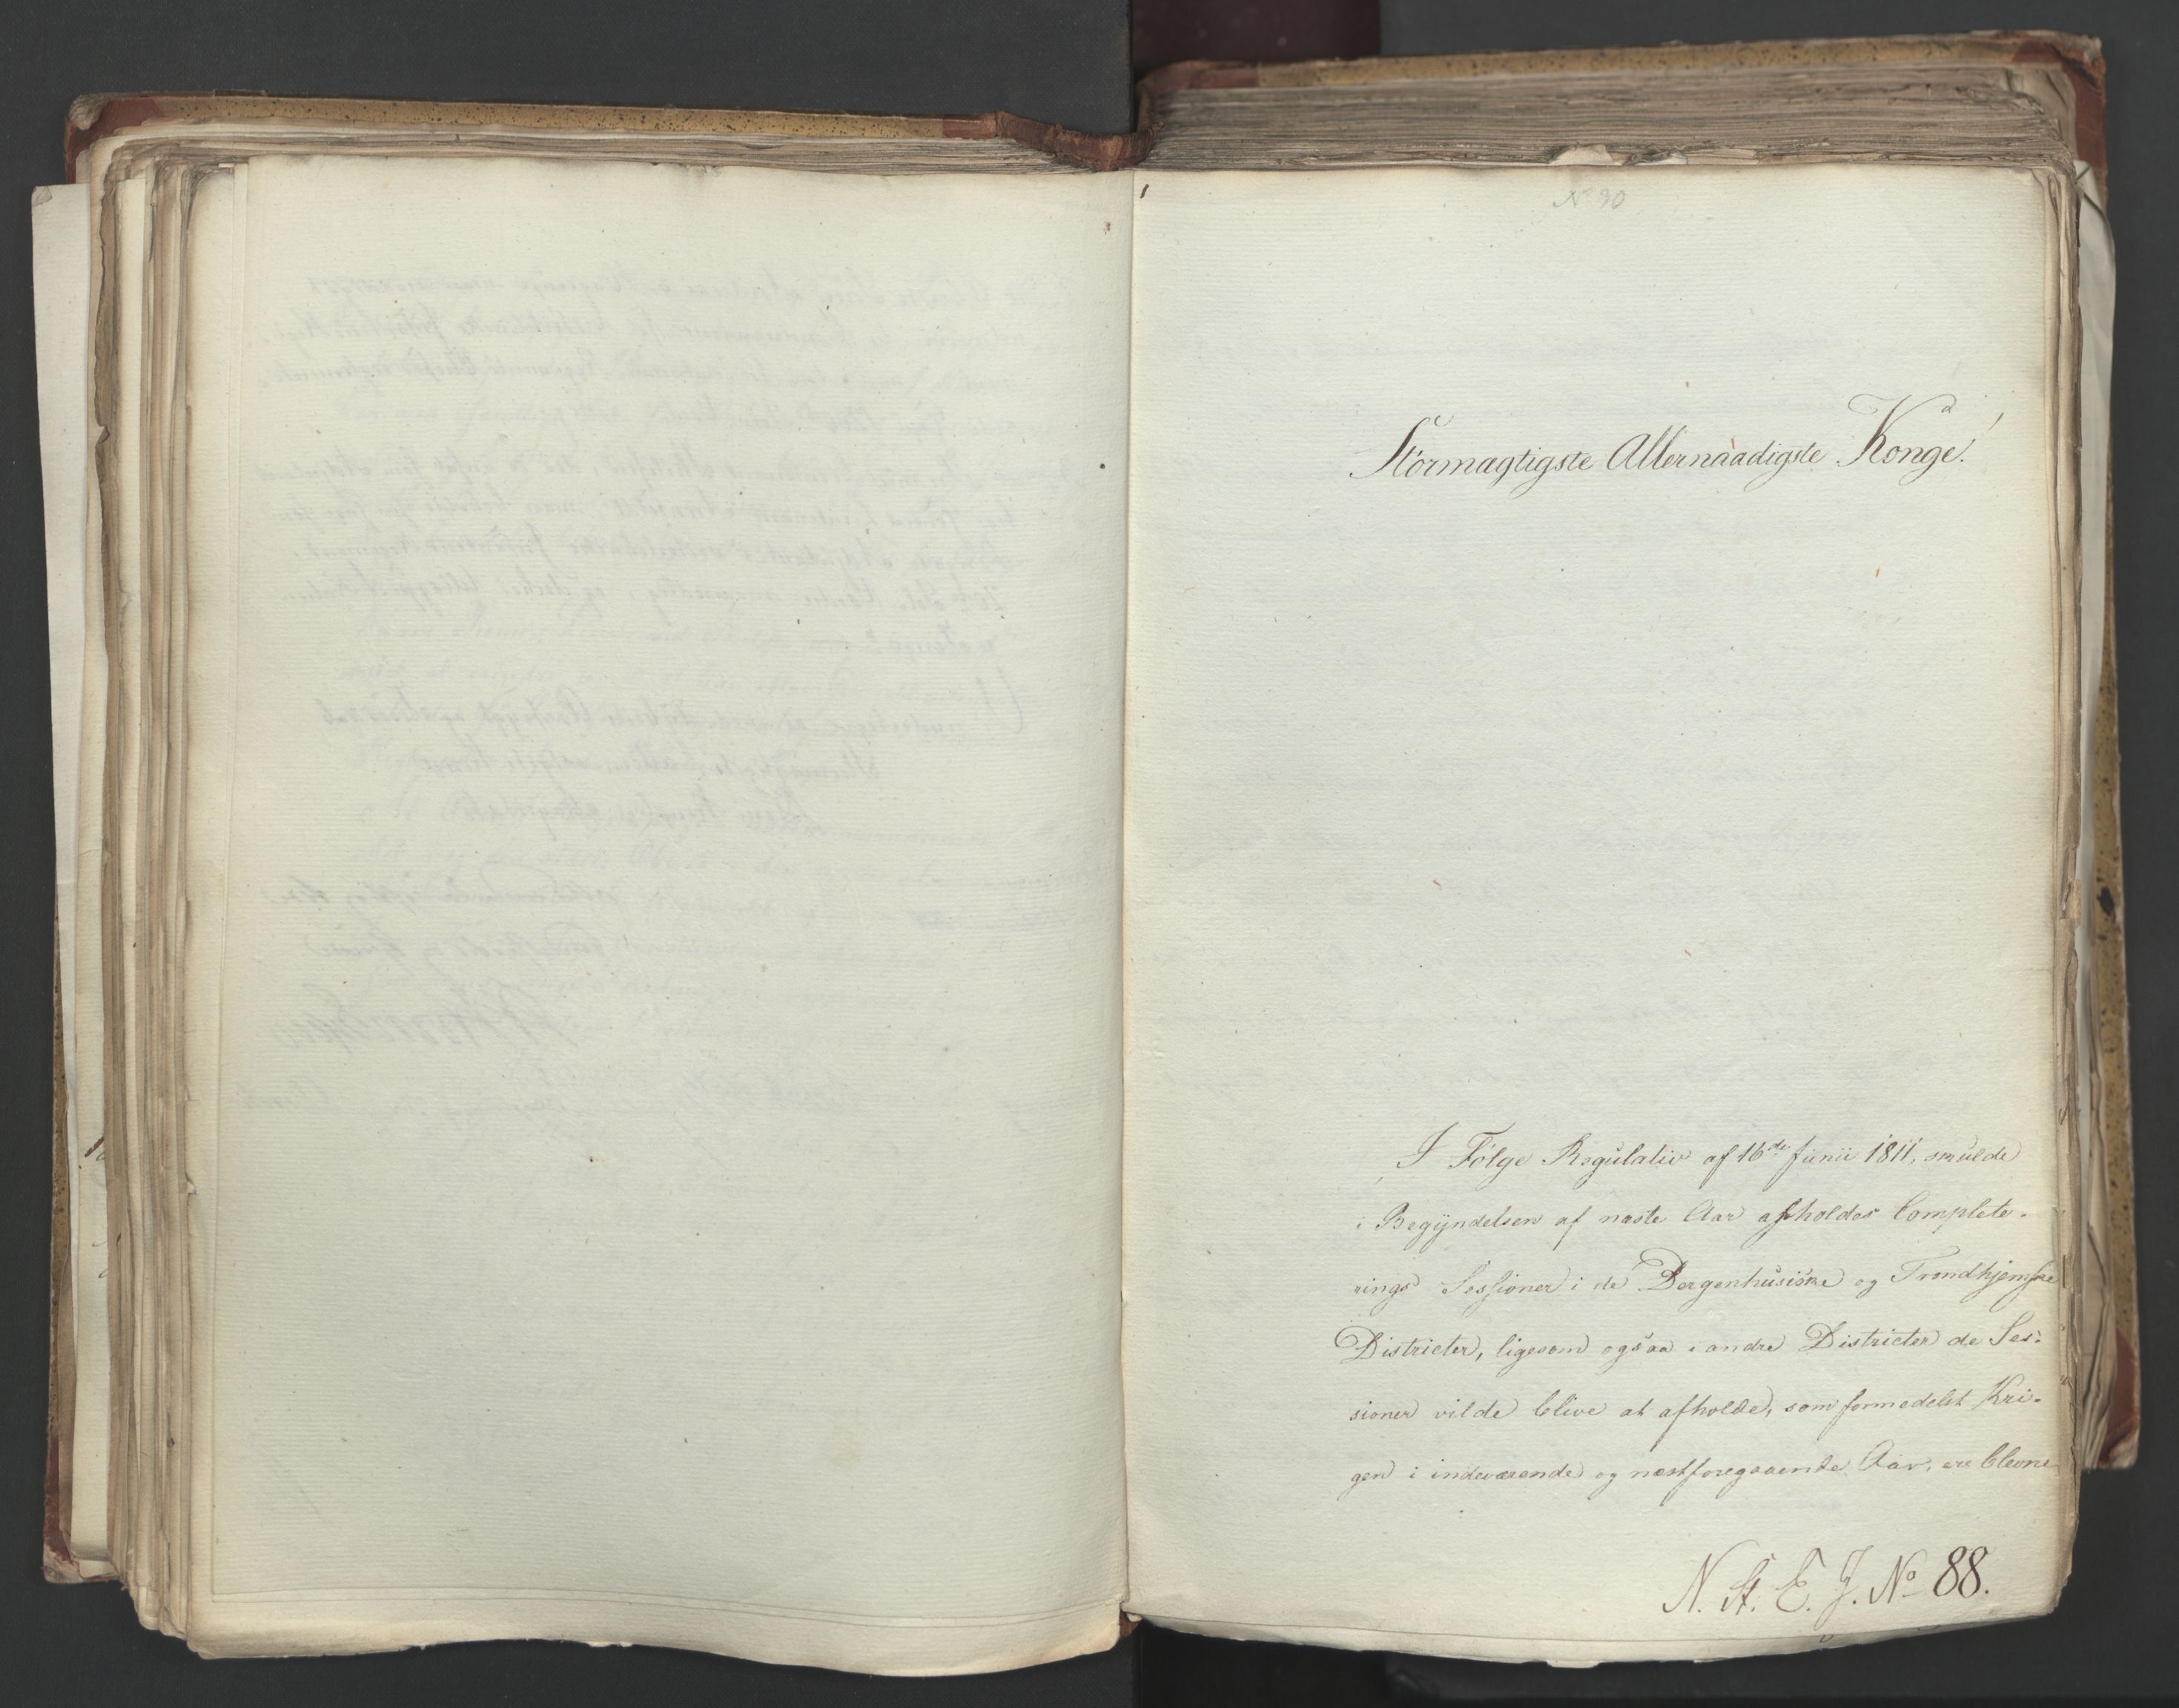 N 90
Stormægtigste Allernaadigste Konge!
I Følge Regulativ af 16de Junii 1811, skulde
i Begyndelsen af næste Aar afholdes Complete-
rings Sessioner i de Bergenhusiske og Trondhjemske
Districter, ligesom ogsaa i andre Districter de Ses-
sioner vilde blive at afholde, som formedelst Kri-
gen i indeværende og næstforegaaende Aar, ere blevne
N. St. E. J. No 88.